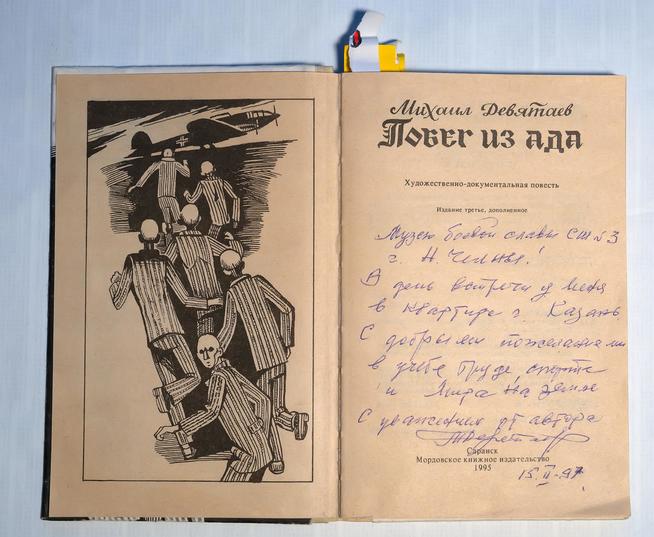 Михаил Девятаев
Побег из ада
Художественно-документальная повесть
Издание третье, дополненное
Музею боевой славы СШ №3
г. Н. Челны!
В день встречи у меня
в квартире г. Казань
С добрыми пожеланиями
в учебе труде, спорте
и Мира на земле
С уважением от автора
Саранск
Мордовское книжное издательство
1995
15.II-97